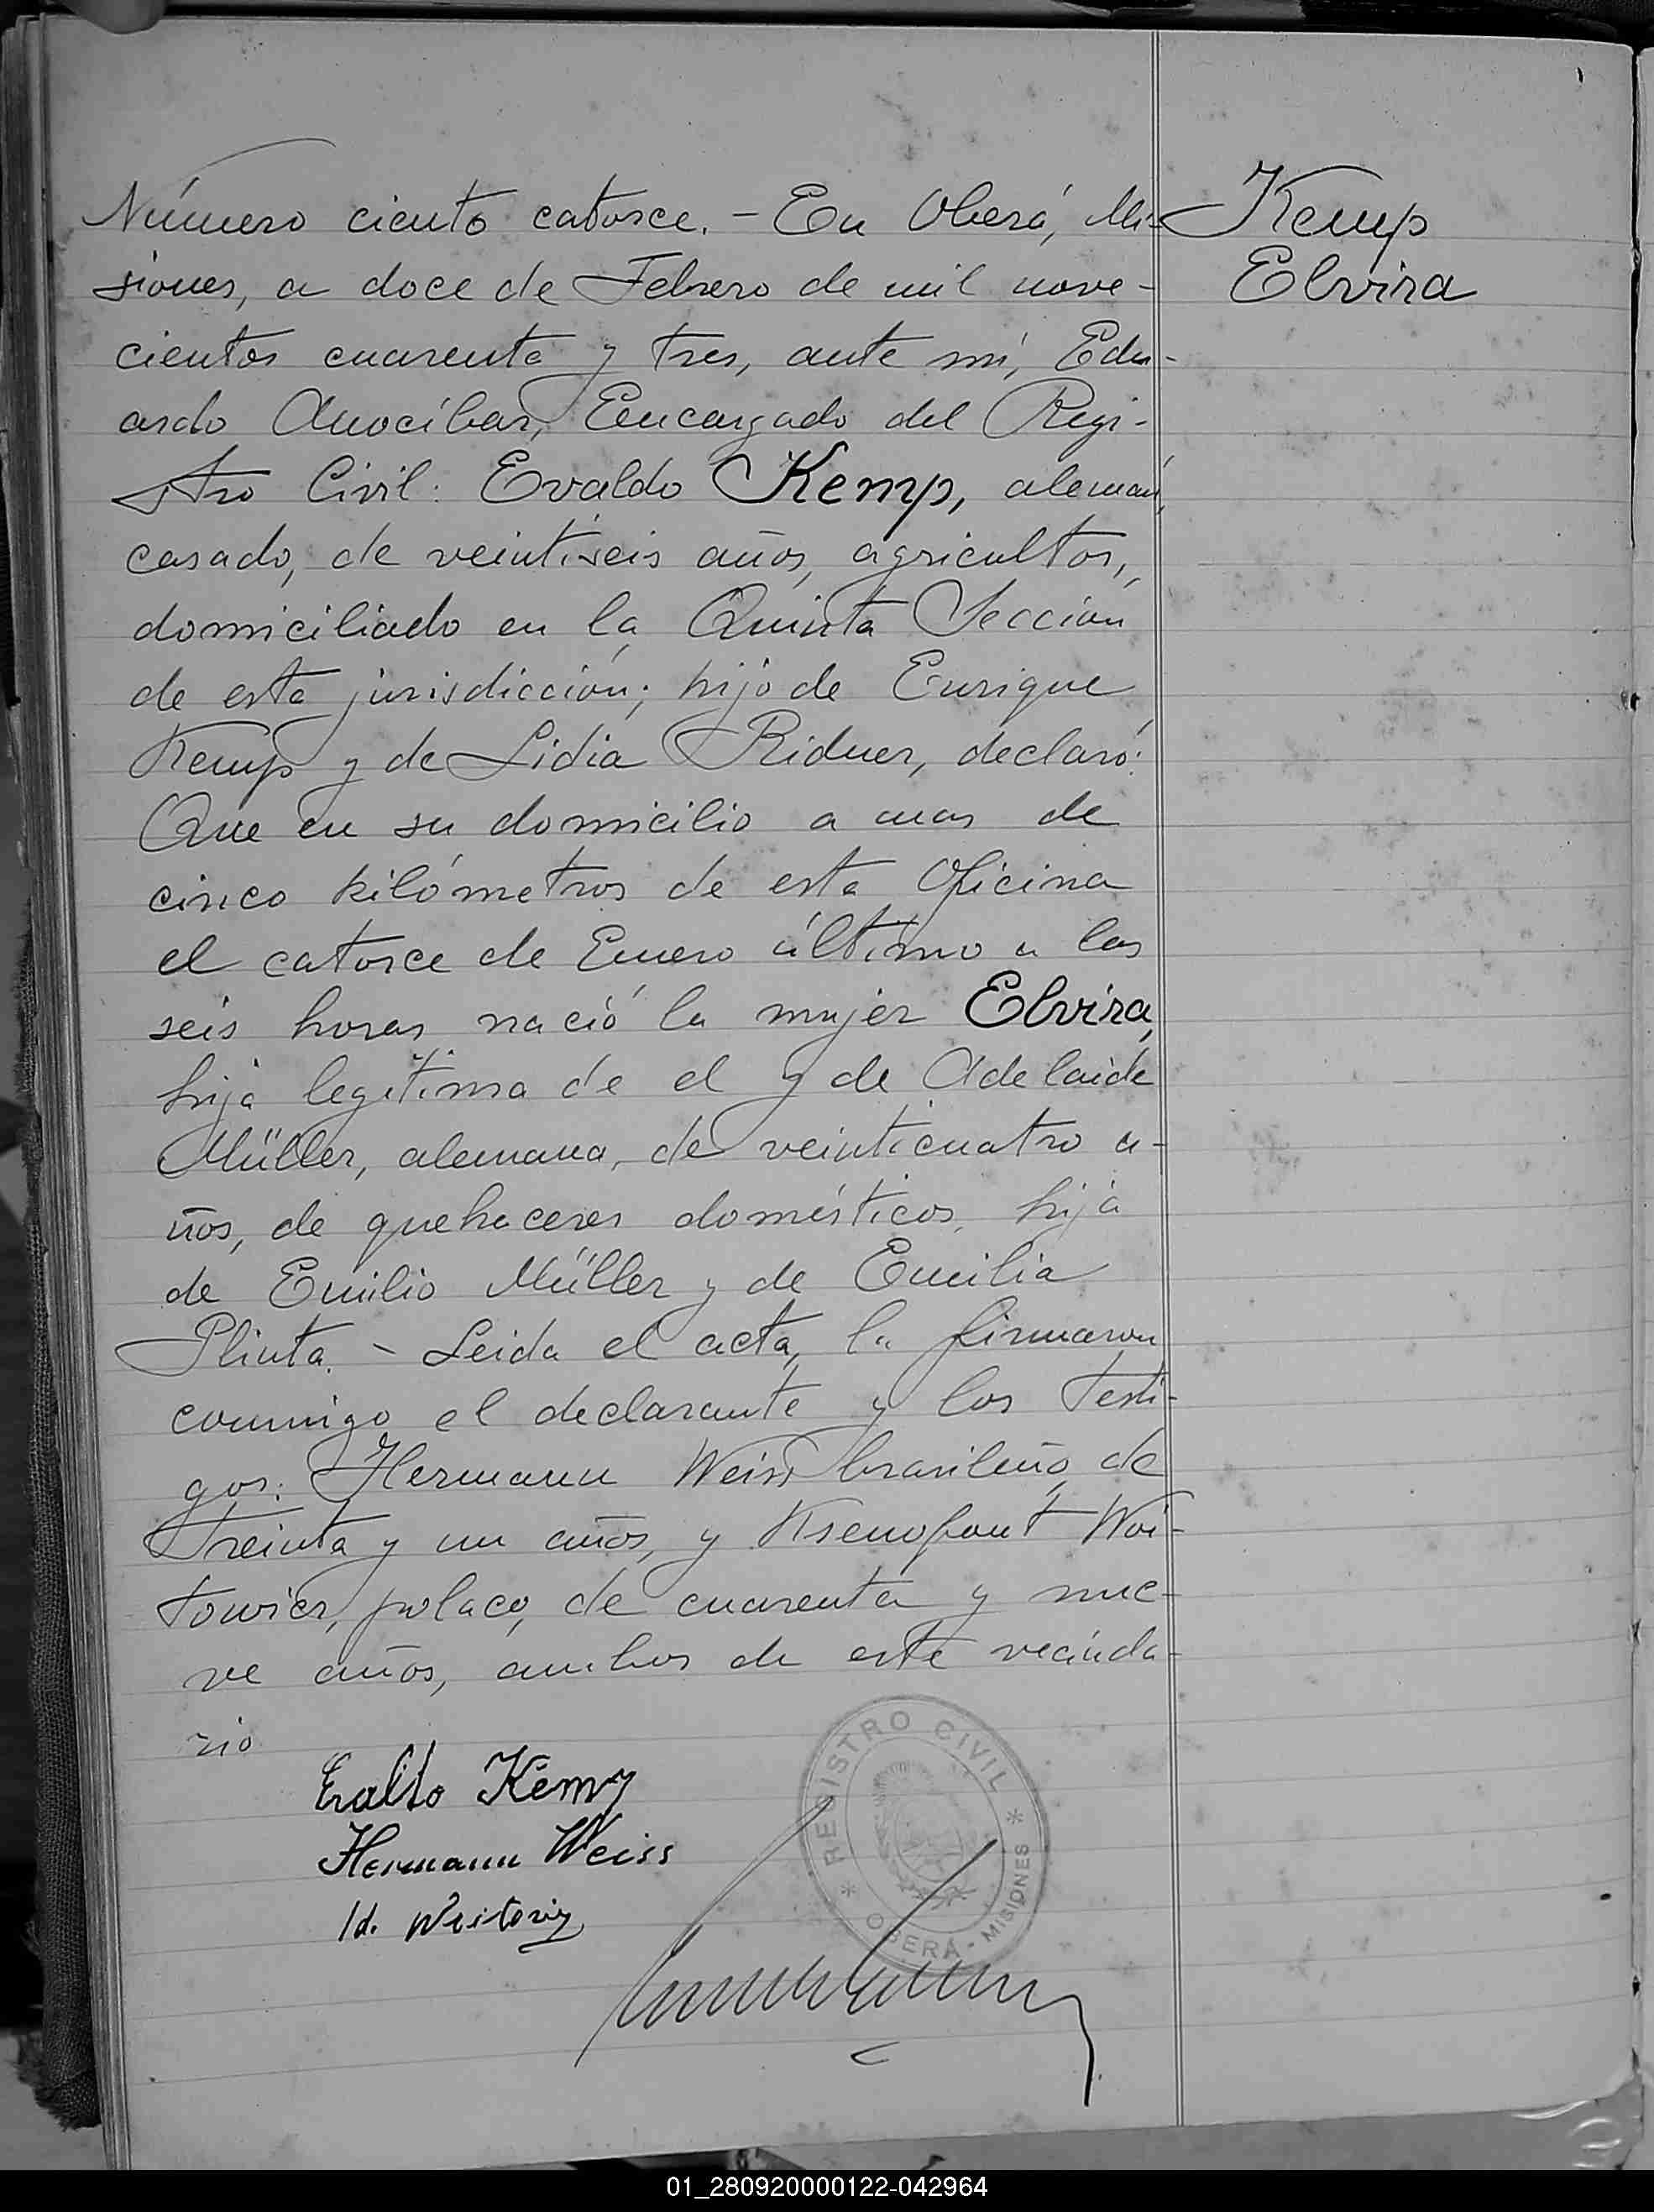 Número ciento catorce. - En Oberá, Mi-
siones, a doce de Febrero de mil nove-
cientos cuarenta y tres, ante mí, Edu-
ardo Anocíbar, Encargado del Regi-
stro Civil: Evaldo Kemp, alemán,
casado, de veintiseis años, agricultor,
domiciliado en la Quinta Sección
de esta jurisdicción; hijo de Enrique
Kemp y de Lidia Ridner, declaró:
Que en su domicilio a mas de
cinco kilómetros de esta Oficina
el catorce de Enero último a las
seis horas nació la mujer Elvira,
hija legítima de el y de Adelaide
Müller, alemana, de veinticuatro a-
ños, de quehaceres domésticos, hija
de Emilio Müller y de Emilia
Plinta. - Leida el acta, la firmaron
conmigo el declarante y los testi-
gos: Hermann Weiss brasileño, de
treinta y un años, y Ksenofont Woi-
towicz, polaco, de cuarenta y nue-
ve años, ambos de este vecinda-
rio
Kemp
Elvira
Evaldo Kemp
Hermann Weiss
REGISTRO CIVIL
OBERÁ - MISIONES
01_280920000122-042964